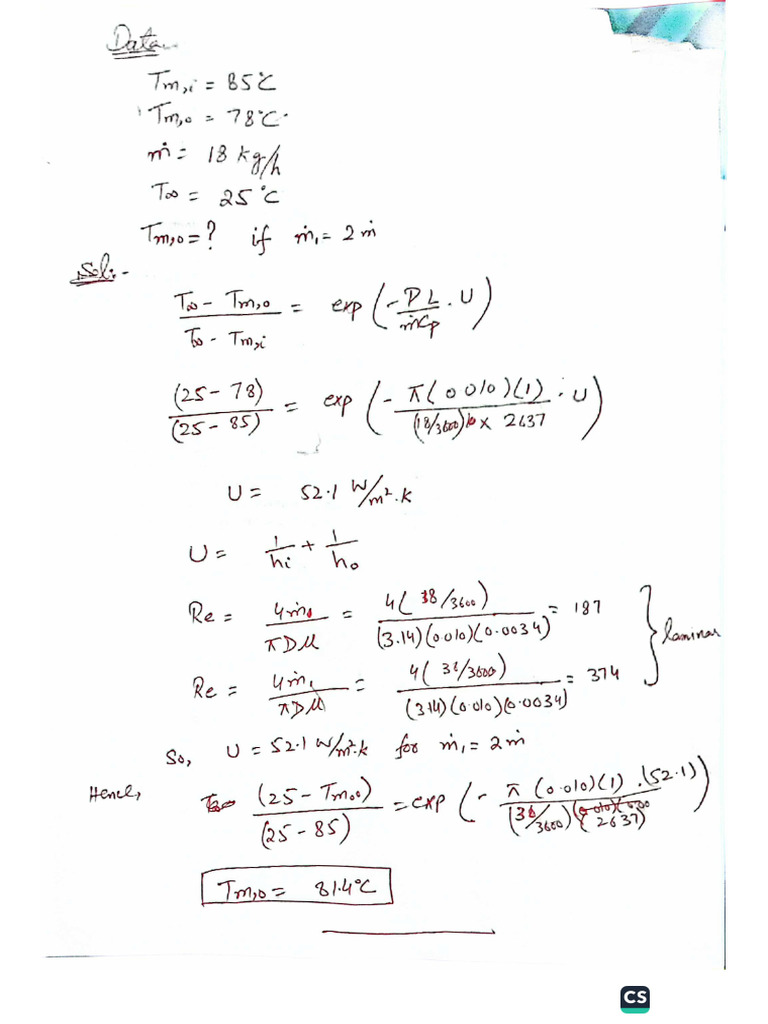 Data
Tm,i = 85°C
Tm,o = 78°C
ṁ = 18 kg/h
T∞ = 25°C
Tm,o = ? if ṁ₁ = 2ṁ
Sol:-
(T∞ - Tm,o) / (T∞ - Tm,i) = exp(- PL/ṁCp . U)
(25 - 78) / (25 - 85) = exp(- π(0.010)(1) / (18/3600) × 2637 . U)
U = 52.1 W/m².k
U = 1/hi + 1/ho
Re = 4ṁ / πDμ = 4(18/3600) / (3.14)(0.010)(0.0034) = 187
laminar
Re = 4ṁ₁ / πDμ = 4(36/3600) / (3.14)(0.010)(0.0034) = 374
So, U = 52.1 W/m².k for ṁ₁ = 2ṁ
Hence, (25 - Tm,o) / (25 - 85) = exp(- π(0.010)(1).(52.1) / (36/3600)(2637))
Tm,o = 81.4°C
CS